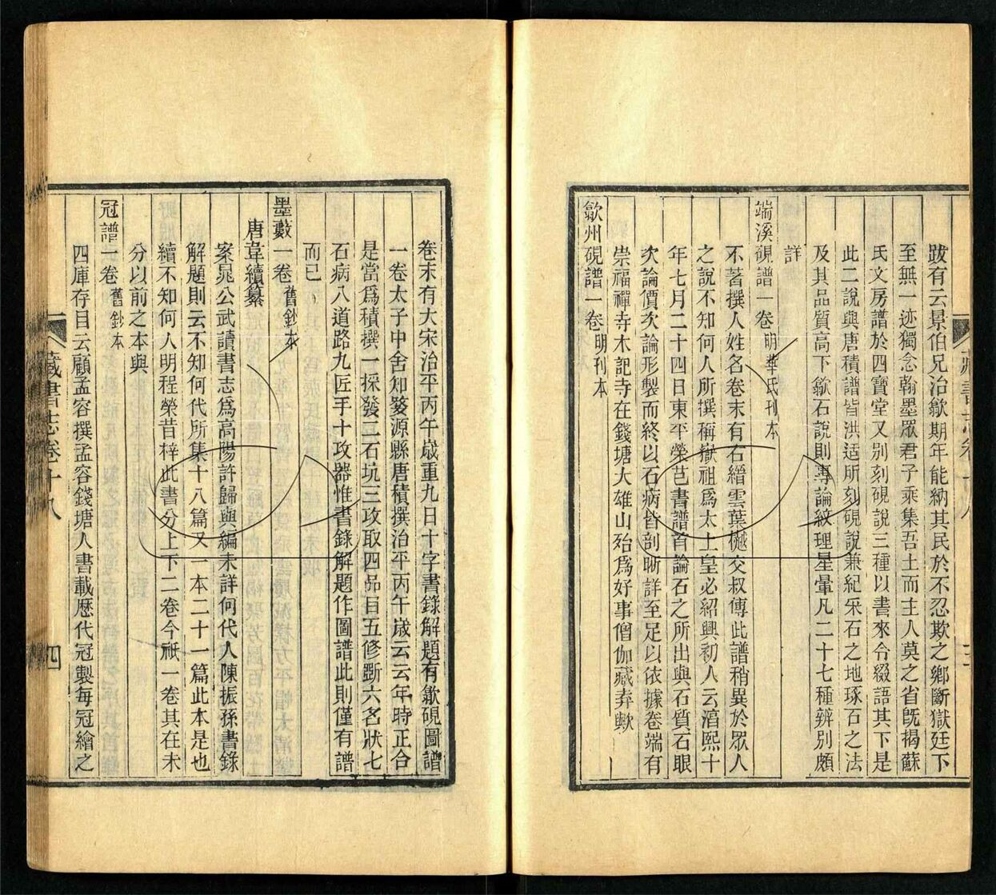 跋有云景伯兄治歙期年能納其民於不忍欺之鄉斷獄廷下
至無一迹獨念翰墨眾君子乘集吾土而主人莫之省旣揭蘇
氏文房譜於四寶堂又別刻硯說三種以書來令綴語其下是
此二說與唐積譜皆洪适所刻硯說兼紀采石之地琢石之法
及其品質高下歙石說則專論紋理星暈凡二十七種辨別頗
詳
端溪硯譜一卷明華氏刊本
不著撰人姓名卷末有石縉雲葉樾交叔傳此譜稍異於眾人
之說不知何人所撰稱嶽祖爲太上皇必紹興初人云淳熙十
年七月二十四日東平榮芑書譜首論石之所出與石質石眼
次論價次論形製而終以石病皆剖晰詳至足以依據卷端有
崇福禪寺木記寺在錢塘大雄山殆爲好事僧伽藏弆歟
歙州硯譜一卷明刊本
卷末有大宋治平丙午歲重九日十字書錄解題有歙硯圖譜
一卷太子中舍知婺源縣唐積撰治平丙午歲云云年時正合
是當爲積撰一採發二石坑三攻取四品目五修斷六名狀七
石病八道路九匠手十攻器惟書錄解題作圖譜此則僅有譜
而已
墨藪一卷舊鈔本
唐韋續纂
案晁公武讀書志爲高陽許歸與編未詳何代人陳振孫書錄
解題則云不知何代所集十八篇又一本二十一篇此本是也
續不知何人明程榮昔梓此書分上下二卷今祇一卷其在未
分以前之本與
冠譜一卷舊鈔本
四庫存目云顧孟容撰孟容錢塘人書載歷代冠製每冠繪之
藏書志卷十八
四